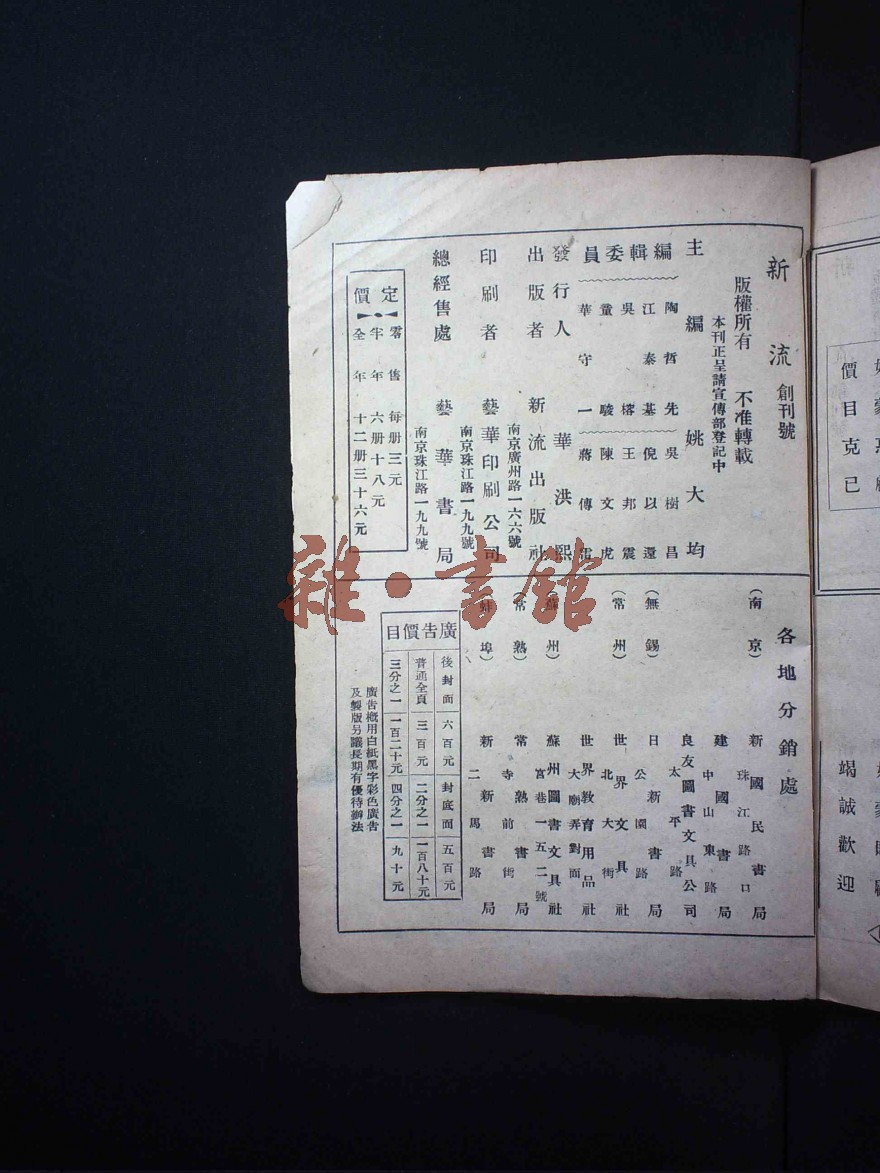 新流 創刊號
版權所有 不准轉載
本刊正呈請宣傳部登記中
主編 姚大均
編輯委員
陶哲先 吳樹昌
江泰基 倪以還
吳榕 王邦震
童駿 陳文虎
華守一 蔣傳
發行人 華洪熙
出版者 新流出版社
南京廣州路一六六號
印刷者 藝華印刷公司
南京珠江路一九九號
總經售處 藝華書局
南京珠江路一九九號
定價
零售 每册三元
半年 六册十八元
全年 十二册三十六元
各地分銷處
(南京) 新國民書局
珠江路口
建國書局
中山東路
良友圖書文具公司
太平路
(無錫) 日新書局
公園路
(常州) 世界文具社
北大街
世界教育用品社
大廟弄對面
(蘇州) 蘇州圖書文具社
宮巷一五二號
(常熟) 常熟書局
寺前街
(蚌埠) 新新書局
二馬路
廣告價目
後封面 六百元 封底面 五百元
普通全頁 三百元 二分之一 一百八十元
三分之一 一百二十元 四分之一 九十元
廣告概用白紙黑字彩色廣告
及製版另議長期有優待辦法
價目克己
竭誠歡迎
雜·書館